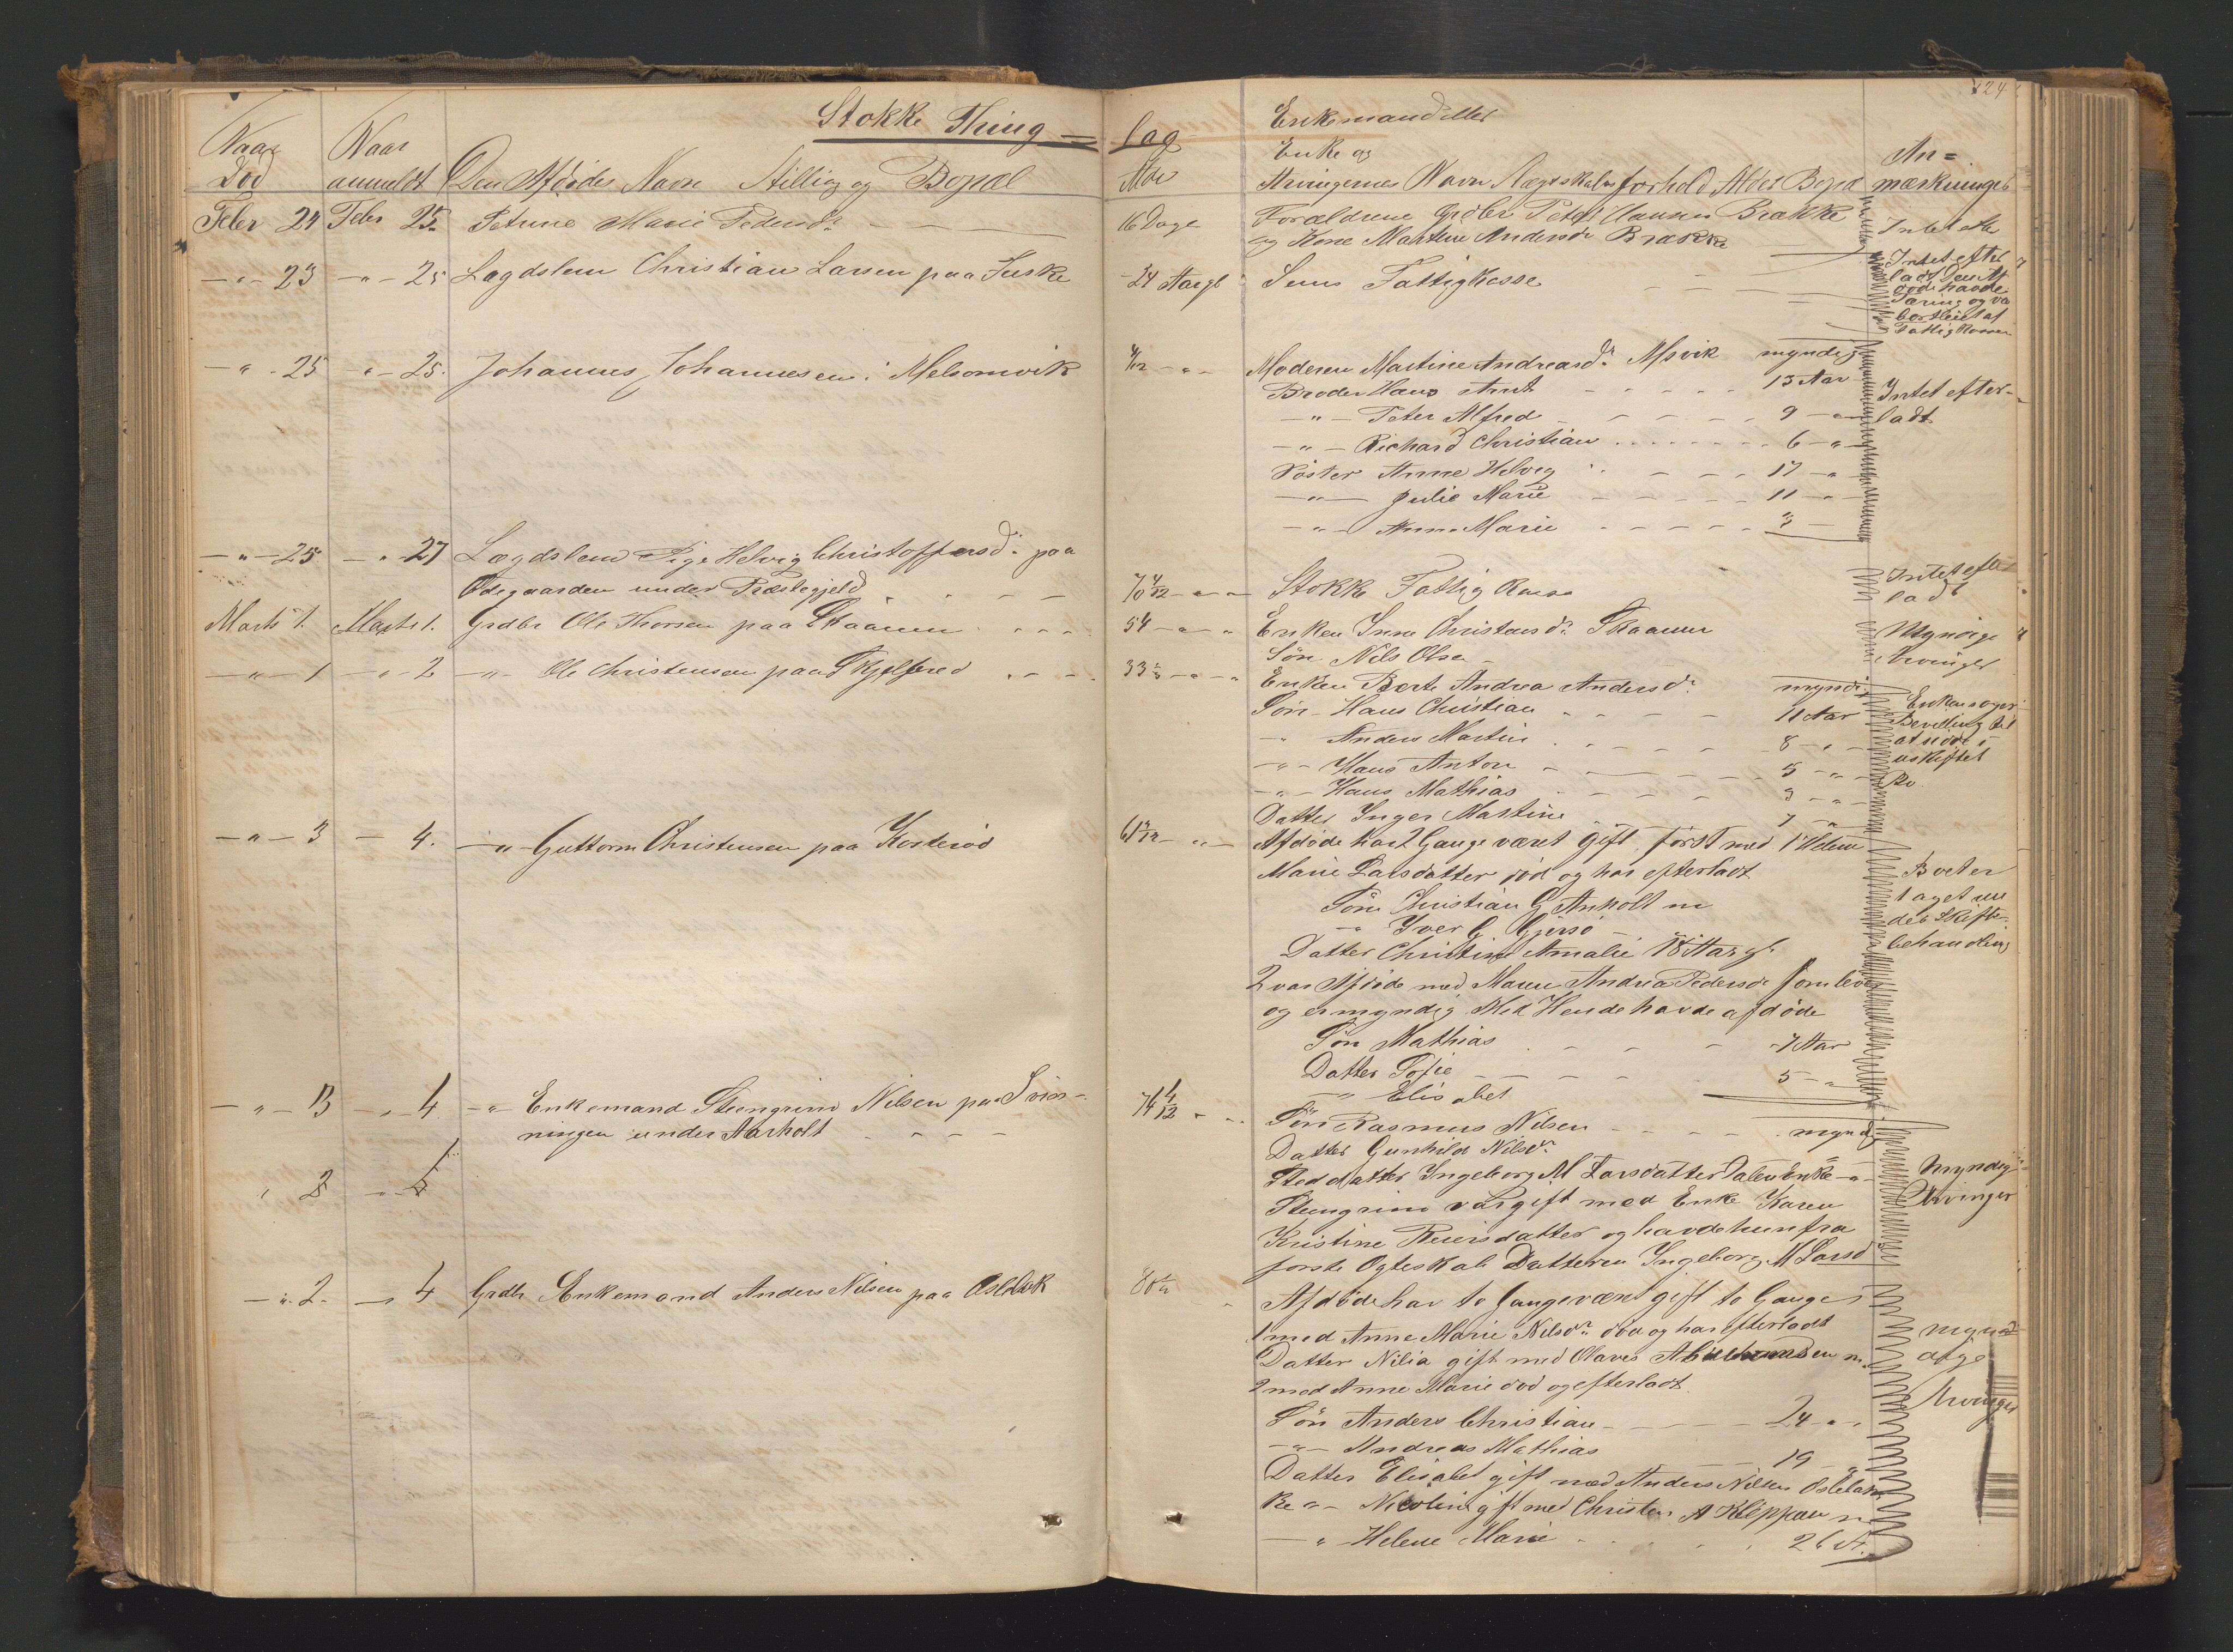 124
Stokke Thing = lag
Naar Død
Naar anmeldt
Den Afdødes Navn Stilling og Bopæl
Alder
Enkemand eller
Enke og
Arvingernes Navn Slægtskabsforhold Alder Bopæl
An=
mærkninger
Febr 24 Febr 25 Petrine Marie Pedersdr 16 Dage
Forældrene Grdbr Peter Hansen Brække
og Kone Martine Andersdr Brække
Intet efter
-"- 23 -"- 25 Lægdslem Christian Larsen paa Fuske 24 Aargl Sems Fattigkasse
Intet efter
ladt Den Af
døde havde
Tæring og va
bortleiet af
Fattigkassen
-"- 25 -"- 25. Johannes Johannesen i Melsomvik 4/12 -"-
Moderen Martine Andreasdr Msvik myndig
Broder Hans 13 Aar
-"- Peter Alfred 9 -"-
-"- Richard Christian 6 -"-
Søster Anne Helvig 17 -"-
-"- Julie Marie 11 -"-
-"- Anna Marie 3 -
Intet efter-
ladt
-"- 25 -"- 27 Lægdslem Pige Helvig Christoffersdr paa
Ødegaarden under Præstegjeld 70 4/12 -"- Stokke Fattig Kasse
Intet efter
ladt
Marts 1. Marts 1. Grdbr Ole Thorsen paa Skaanen 54 -"-
Enken Inne Christensdr Skaanen
Søn Nils Olsen
Myndige
Arvinger
-"- 1 -"- 2 -"- Ole Christensen paa Skjelfred 33 -"-
Enken Berte Andrea Andersdr myndig
Søn Hans Christian 11 Aar
-"- Anders Martin 8 -"-
-"- Hans Anton 5 -"-
-"- Hans Mathias 3 -"-
Datter Inger Martine 7 -"-
Enken søger
Bevilling til
at sidde i
uskiftet
Bo
-"- 3 - 4. -"- Guttorm Christensen paa Korterød 61 /12 -"-
Afdøde har 2 Gange været gift først med 1 Helene
Marie Larsdatter død og har efterladt
Søn Christian G Anholt m
-"- Iver G Gjersø -
Datter Christine Amalie 18 Aar gl
2 var Afdøde med Maren Andrea Pedersdr som lever
og er myndig Med Hende havde afdøde
Søn Mathias 7 Aar
Datter Sofie 5 -"-
-"- Elisabet
Boet er
taget un
der Skifte-
behandling
-"- 3 -"- 4 -"- Enkemand Steengrim Nilsen paa Svin-
ningen under Aarholt 74 4/12 -"-
Søn Rasmus Nilsen mynd
Datter Gunhild Nilsdr
Steddatter Ingeborg M Larsdatter Dalen Enke -"-
Steengrim var gift med Enke Karen
Kristine Reiersdatter og havde hun fra
første Ægteskab Datteren Ingeborg M Larsd
Myndige
Arvinger
" 2 -"- 4
-"- 2. - 4 Grdbr Enkemand Anders Nilsen paa Oslebak
Afdøde har to Gange været gift to Gange
1 med Anne Marie Nilsdr død og har efterladt
Datter Nilia gift med Olaves Abrahamsen m.
2 med Anne Marie død og efterladt
Søn Anders Christian 24 -"-
-"- Andreas Mathias 19 -
Datter Elisabet gift med Anders Nilsen Oslebak
ke -"- Nicoline gift med Christen A Kleppan m
-"- Helene Marie 26 A.
mynd
dige
Arvinger